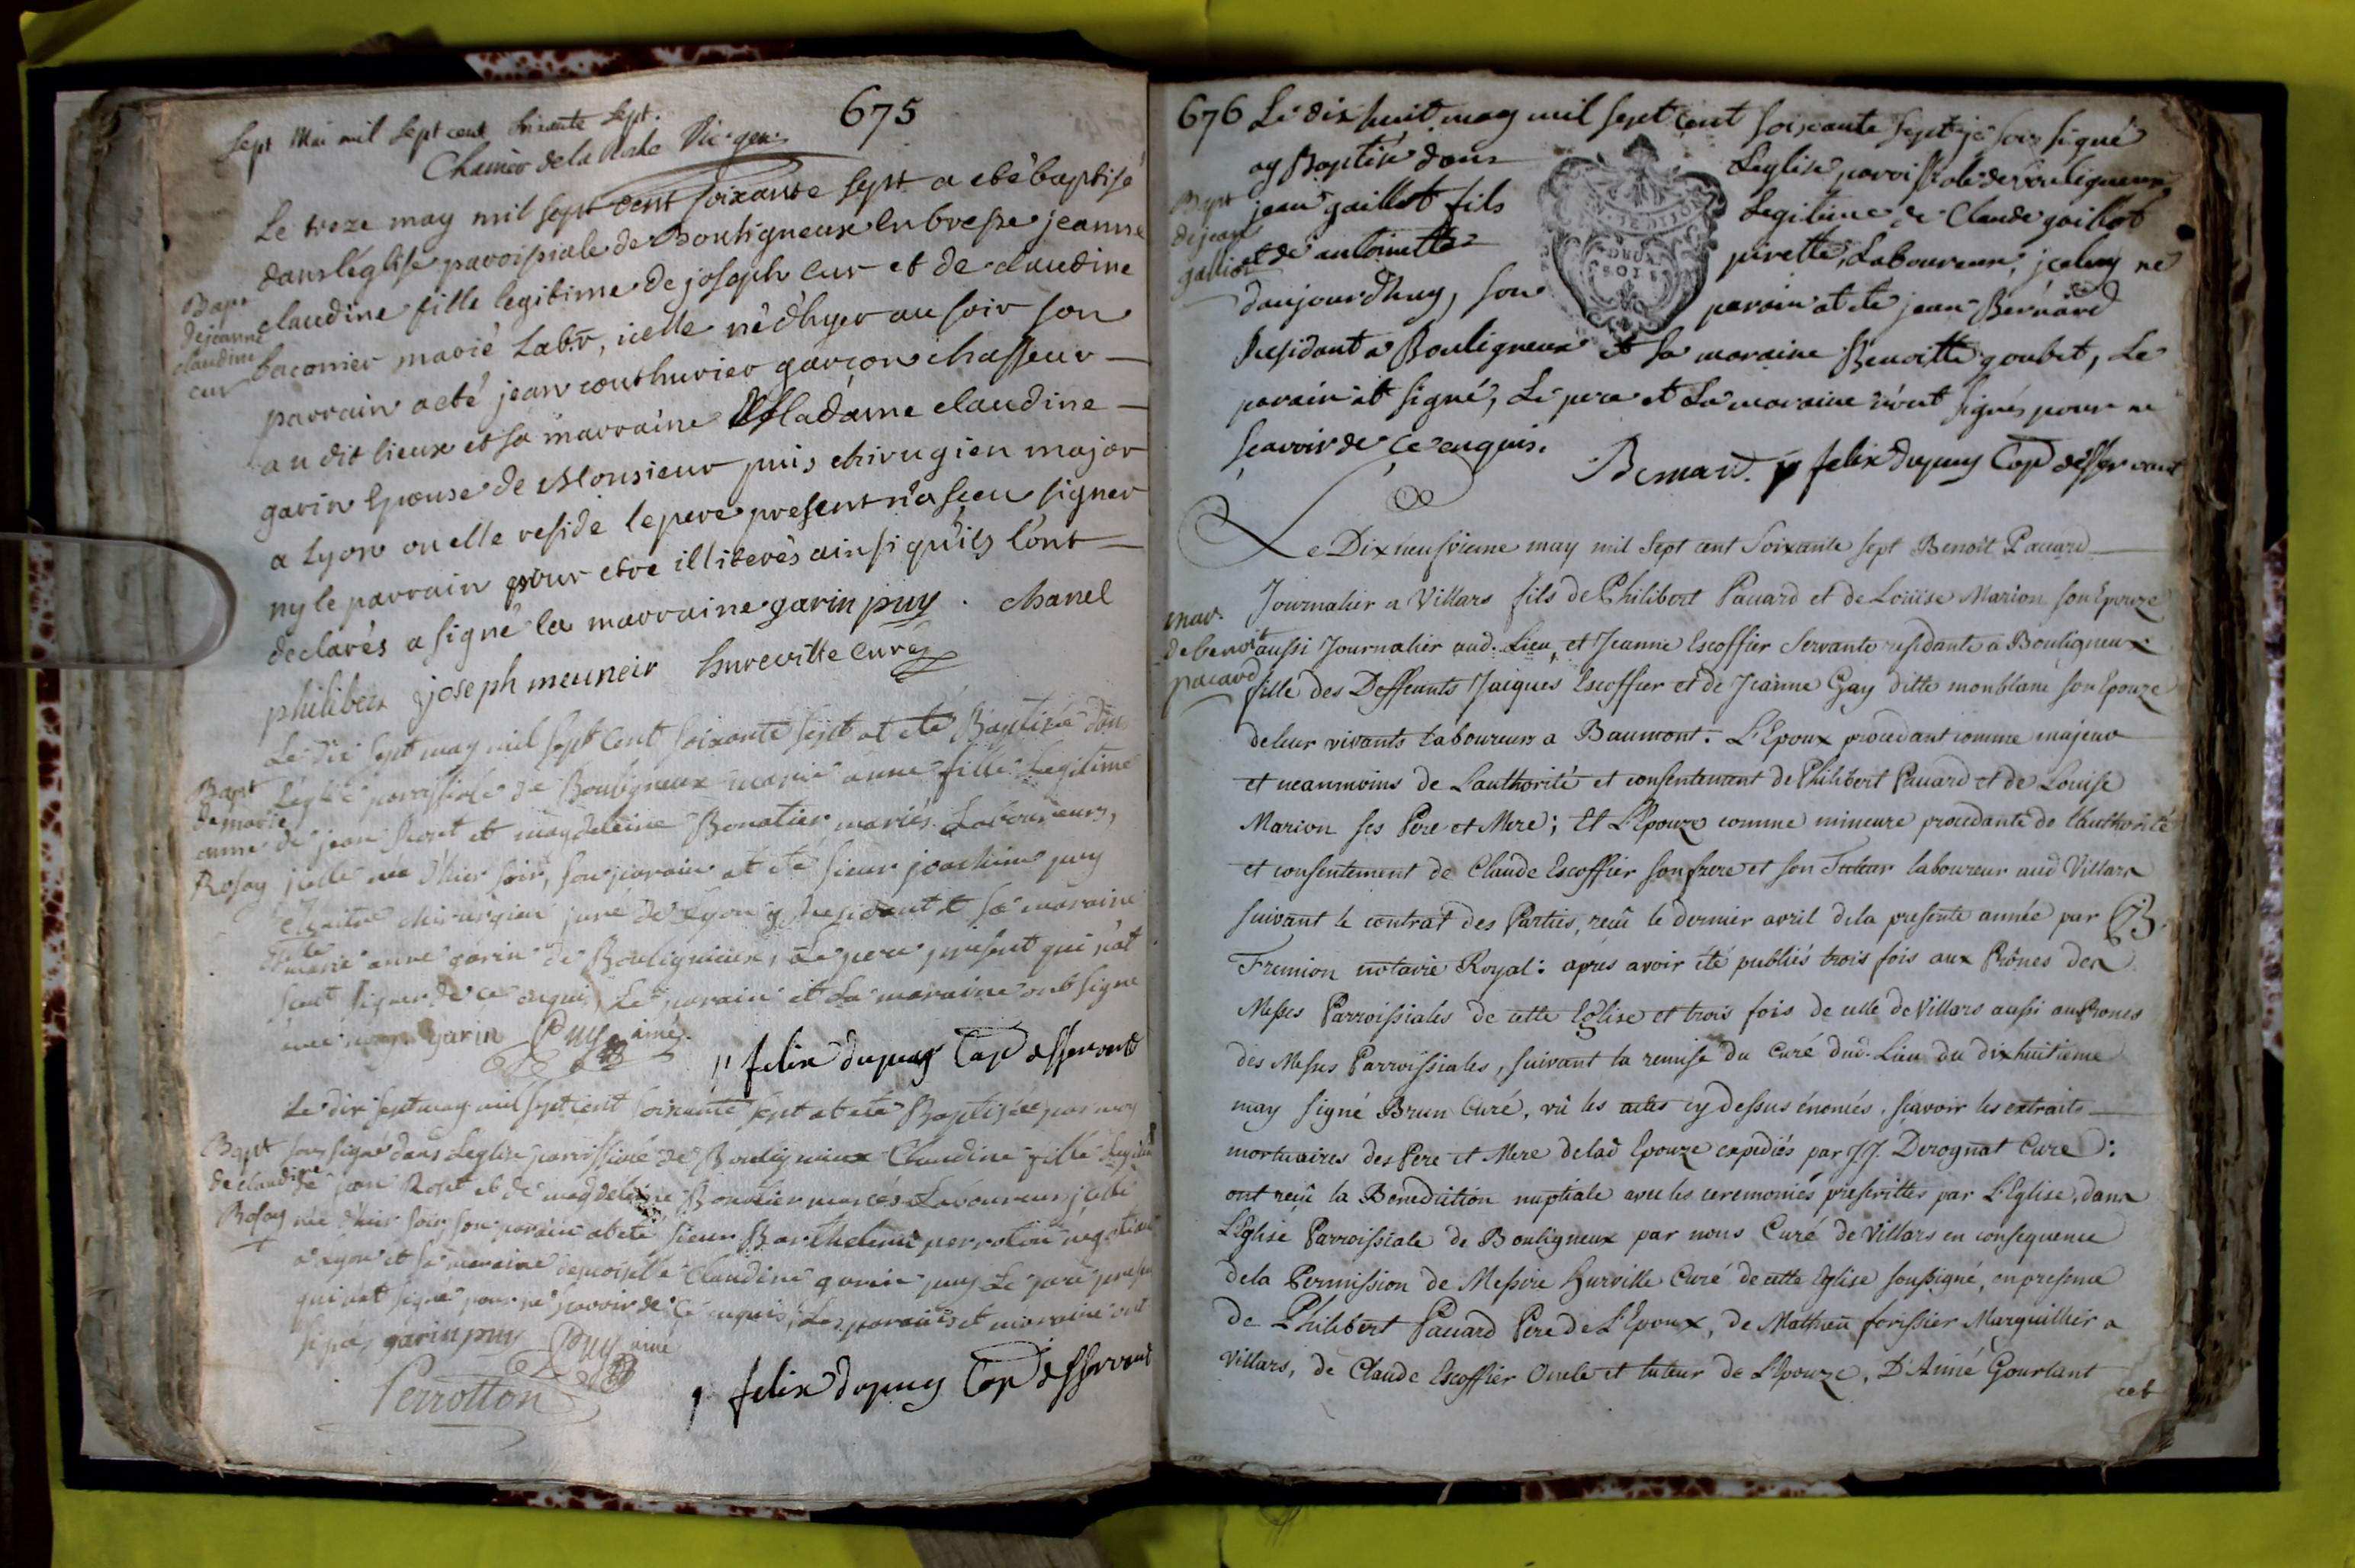 675
sept Mai mil sept cent soixante sept.
Chainéo de la Vic gen
Le treze may mil sept cent soixante sept a eté baptisé
dans l'église paroissiale de Bouligneux en bresse jeanne
claudine fille legitime de joseph cur et de claudine
Bapt
de jeanne
claudine
cur
baconier marié Labr, icelle né d'hyer au soir son
parrain a eté jean couthurier garçon chasseur
au dit lieux et sa marraine Madame claudine
garin Epouse de Monsieur puis chirugien major
a Lyon ou elle reside le pere present n'a sceu signer
ny le parrain pour etre illiterés ainsi qu'ils l'ont
declarés a signé la marraine garin puy . chanel
philibert joseph meuneir hureville curé
Le dix sept may mil sept cent soixante sept at eté Baptisée dans
Bapt
de marie
anne
Rosay
l'eglise parroissiale de Bouligneux marie anne fille Legitime
de jean Roset et magdeleine Bonatier mariés Laboureurs,
jcelle née d'hier soir, son parain at été sieur joachim puy
maitre chirurgien juré de Lyon y residant et sa maraine
marie anne garin de Bouligneux, Le pere present qui n'at
sceut signer de ce enquis, Le parain et La maraine ont signé
avec nous garin Puy ainé
p felix dupuy Cap desservant
Le dix sept may mil sept cent soixante sept at eté Baptisée par moy
Bapt
de claudine
Rosay
sous signé dans Leglise parroissiale de Bouligneux Claudine fille Legitime
de jean Roset et de magdeleine Bonatier mariés Laboureurs jcelle
née d'hier soir, son parain at eté sieur Barthelemi perroton negotiant
a Lyon et sa maraine demoiselle Claudine garin puy Le pere present
qui n'at signé pour ne sçavoir de ce enquis, Les parains et maraine ont
signé, garin puy Puy ainé
Perrotton
p felix dupuy Cap desservant
676 Le dix huit may mil sept cent soixante sept je sous signé
ay Baptisé dans Leglise paroissiale de bouligneux,
Bapt
de jean
gallior
jean gaillot fils Legitime de Claude gaillot
et de antoinette pirette, Laboureur, jceluy né
daujourdhuy, son parain at eté jean Bernard
Residant a Bouligneux et sa maraine Benoitte goubet, Le
parain at signé, Le pere et La maraine n'ont signés pour ne
sçavoir de ce enquis.
Bernard. p felix dupuy Cap desservant
Le Dixneufvieme may mil sept cent soixante sept Benoit Pacard
Journalier a Villars fils de Philibert Pacard et de Loüise Marion son Epouze
mar.
de benoit
pacard
aussi Journalier aud. Lieu, et Jeanne Escoffier Servante residante a Bouligneux
fille des Deffeunts Jaiques Escoffier et de Jeanne Gay ditte monblanc son Epouze
de leur vivants laboureurs a Baumont. L'Epoux procedant comme majeur
et neanmoins de Lauthorité et consentement de Philibert Pacard et de Louise
Marion ses Pere et Mere; Et L'Epouze comme mineure procedante de l'authorité
et consentement de Claude Escoffier son frere et son Tuteur laboureur aud Villars
suivant le contrat des Parties, reçu le dernier avril de la presente année par
Fremion notaire Royal: apres avoir été publiés trois fois aux Prônes des
Messes Parroissiales de cette Eglise et trois fois de celle de Villars aussi au Prones
des Messes Parroissiales, suivant la remise du Curé dud. Lieu du dixhuitieme
may signé Brun Curé, vû les actes cy dessus énoncés, sçavoir les extraits
mortuaires des Pere et Mere de lad Epouze expediés par J.J. Derognat Curé :
ont reçu la Benediction nuptiale avec les ceremonies prescrittes par L'Eglise, dans
L'Eglise Parroissiale de Bouligneux par nous Curé de Villars en consequence
de la Permission de Messire Hurville Curé de cette Eglise soussigné, en presence
de Philibert Pacard Pere de L'Epoux, de Mathieu forissier Marguillier a
Villars, de Claude Escoffier Oncle et tuteur de L'Epouze, D'Aimé Gourlant
cet